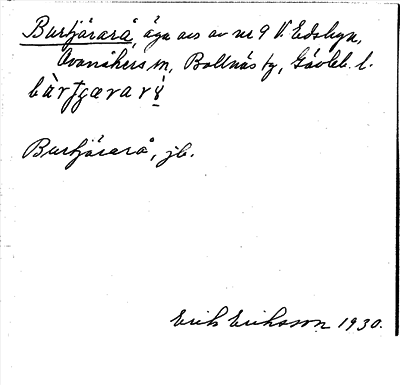 Burtjärarå, äga avs av nr 9 V. Edsbyn,
Ovanåkers sn, Bollnäs tg, Gävleb. l.
Burtjärarå, jb.
Erik Eriksson 1930.